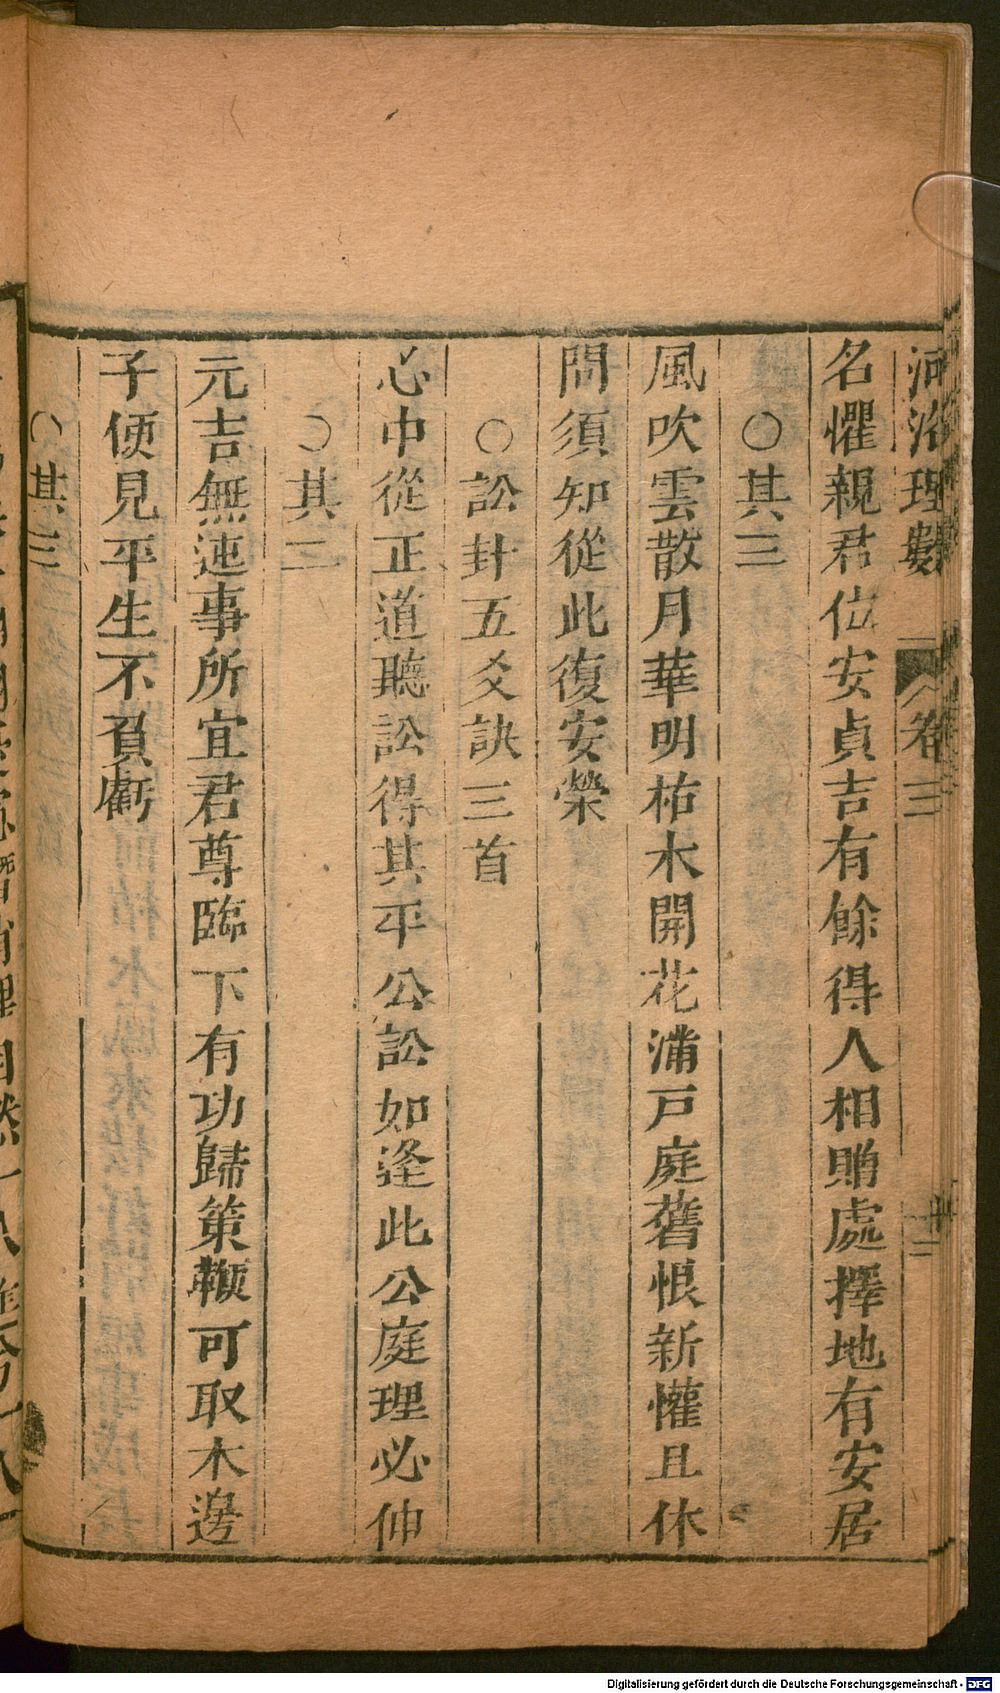 河洛理數 卷三 十二
名懼親君位安貞吉有餘得人相贈處擇地有安居
○其三
風吹雲散月華明枯木開花滿戶庭舊恨新懽且休
問須知從此復安榮
○訟卦五爻訣三首
心中從正道聽訟得其平公訟如逢此公庭理必伸
○其二
元吉無迍事所宜君尊臨下有功歸策鞭可取木邊
子便見平生不負虧
○其三
Digitalisierung gefördert durch die Deutsche Forschungsgemeinschaft - DFG